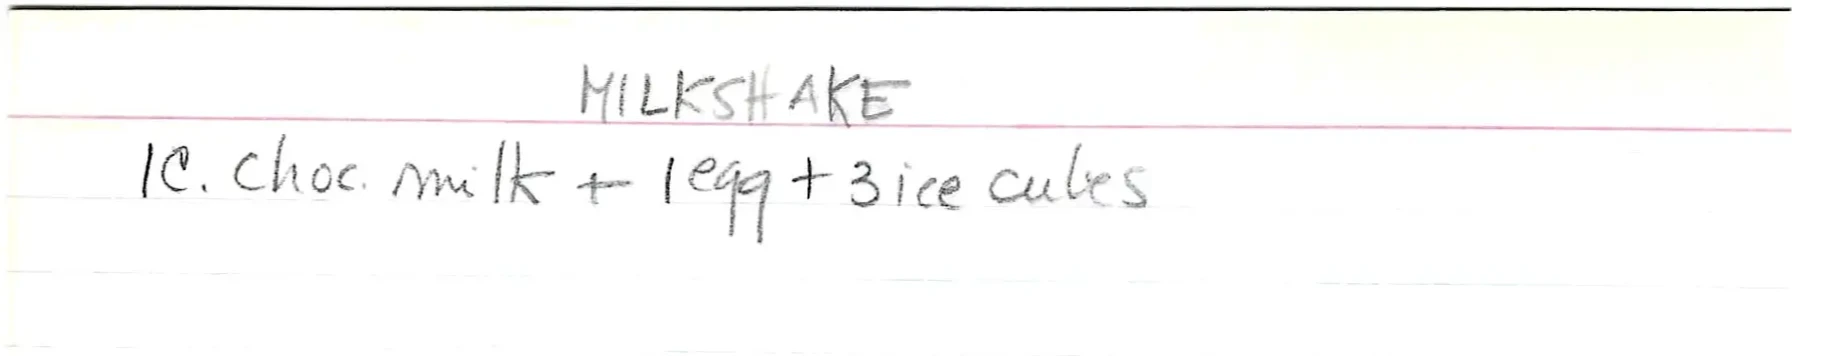 MILKSHAKE
1C. choc. milk + 1 egg + 3 ice cubes